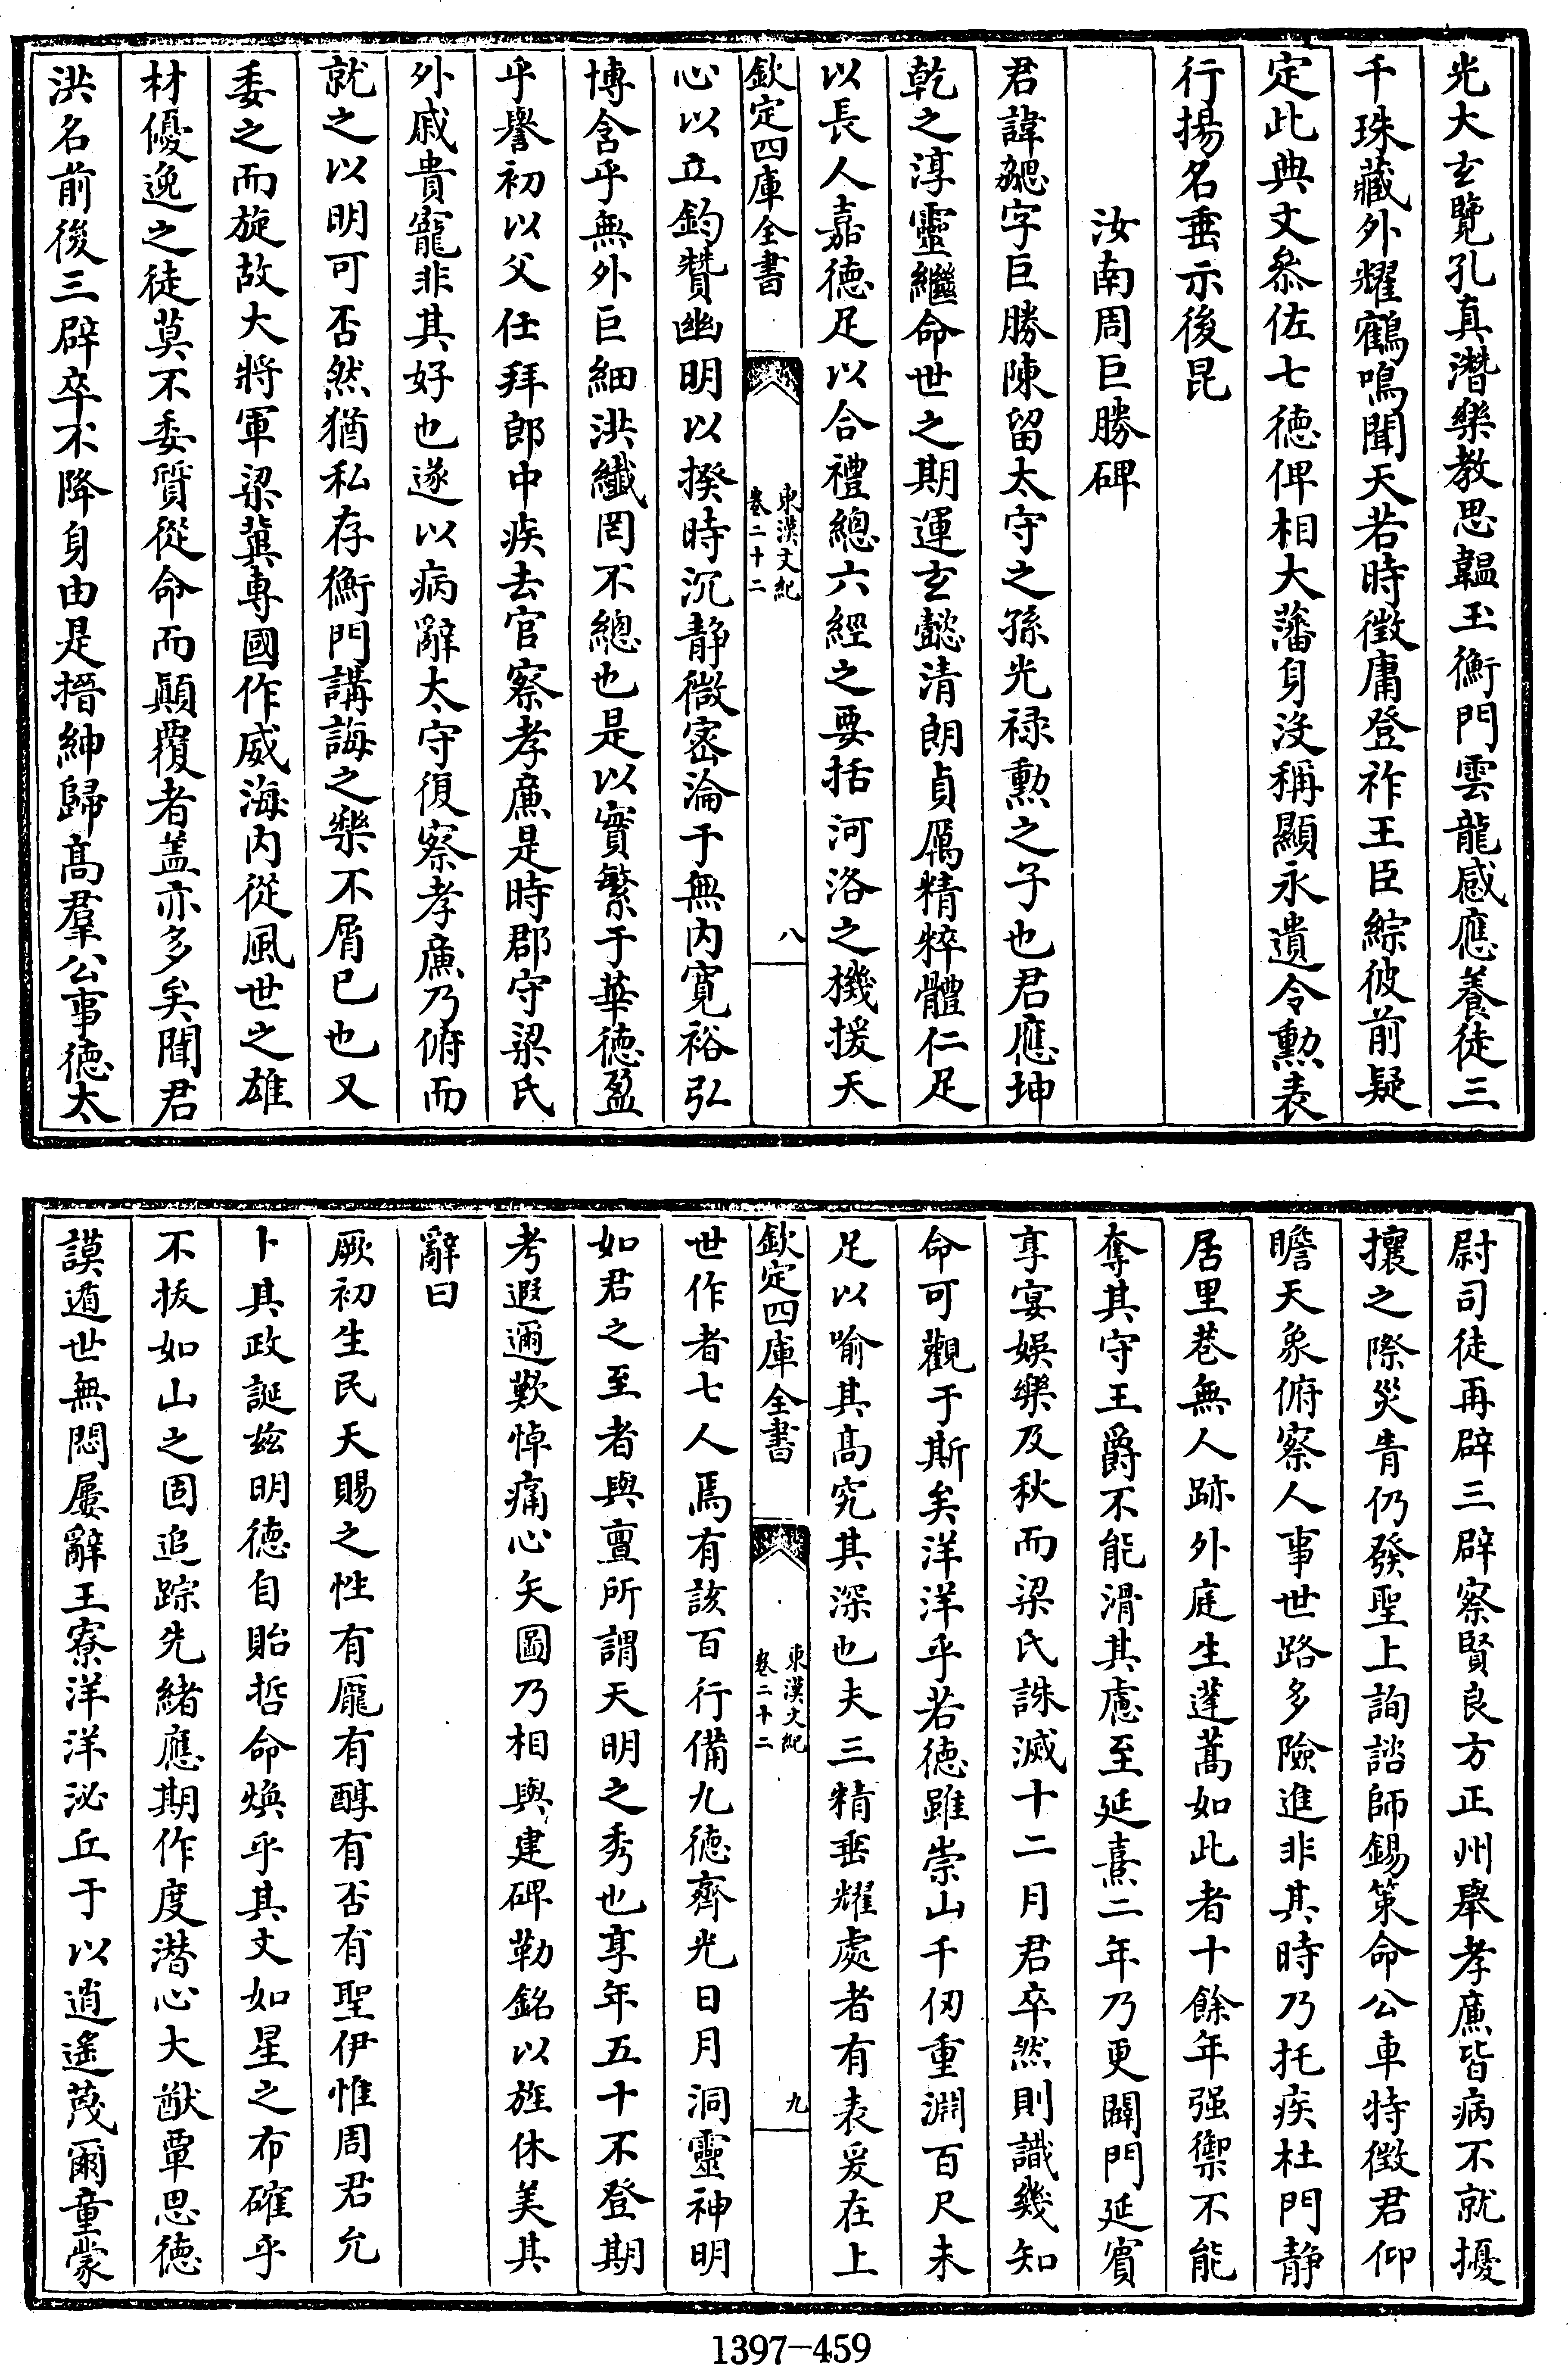 光大玄覽孔真潛樂教思韞玉衡門雲龍感應養徒三
千珠藏外耀鶴鳴聞天若時徵庸登祚王臣綜彼前疑
定此典文叅佐七德俾相大藩身沒稱顯永遺令勲表
行揚名垂示後昆
汝南周巨勝碑
君諱勰字巨勝陳留太守之孫光禄勲之子也君應坤
乾之淳靈繼命世之期運玄懿清朗貞厲精粹體仁足
以長人嘉德足以合禮總六經之要括河洛之機援天
欽定四庫全書
東漢文紀
卷二十二
八
心以立鈞贊幽明以揆時沉静微密淪于無内寛裕弘
博含乎無外巨細洪纖罔不總也是以實繁于華德盈
乎譽初以父任拜郎中疾去官察孝廉是時郡守梁氏
外戚貴寵非其好也遂以病辭太守復察孝廉乃俯而
就之以明可否然猶私存衡門講誨之樂不屑已也又
委之而旋故大將軍梁冀專國作威海内從風世之雄
材優逸之徒莫不委質從命而顛覆者盖亦多矣聞君
洪名前後三辟卒不降身由是搢紳歸高羣公事德太
尉司徒再辟三辟察賢良方正州舉孝廉皆病不就擾
攘之際災眚仍發聖上詢諮師錫策命公車特徵君仰
瞻天象俯察人事世路多險進非其時乃托疾杜門静
居里巷無人跡外庭生蓬蒿如此者十餘年强禦不能
奪其守王爵不能滑其慮至延熹二年乃更闢門延賓
享宴娛樂及秋而梁氏誅滅十二月君卒然則識幾知
命可觀于斯矣洋洋乎若德雖崇山千仞重淵百尺未
足以喻其高究其深也夫三精垂耀處者有表爰在上
欽定四庫全書
東漢文紀
卷二十二
九
世作者七人焉有該百行備九德齊光日月洞靈神明
如君之至者與亶所謂天明之秀也享年五十不登期
考遐邇歎悼痛心矢圖乃相與建碑勒銘以旌休美其
辭曰
厥初生民天賜之性有龐有醇有否有聖伊惟周君允
卜其政誕兹明德自貽哲命煥乎其文如星之布確乎
不拔如山之固追踪先緒應期作度潜心大猷覃思德
謨遁世無悶屢辭王寮洋洋泌丘于以逍遙蔑爾童蒙
1397—459